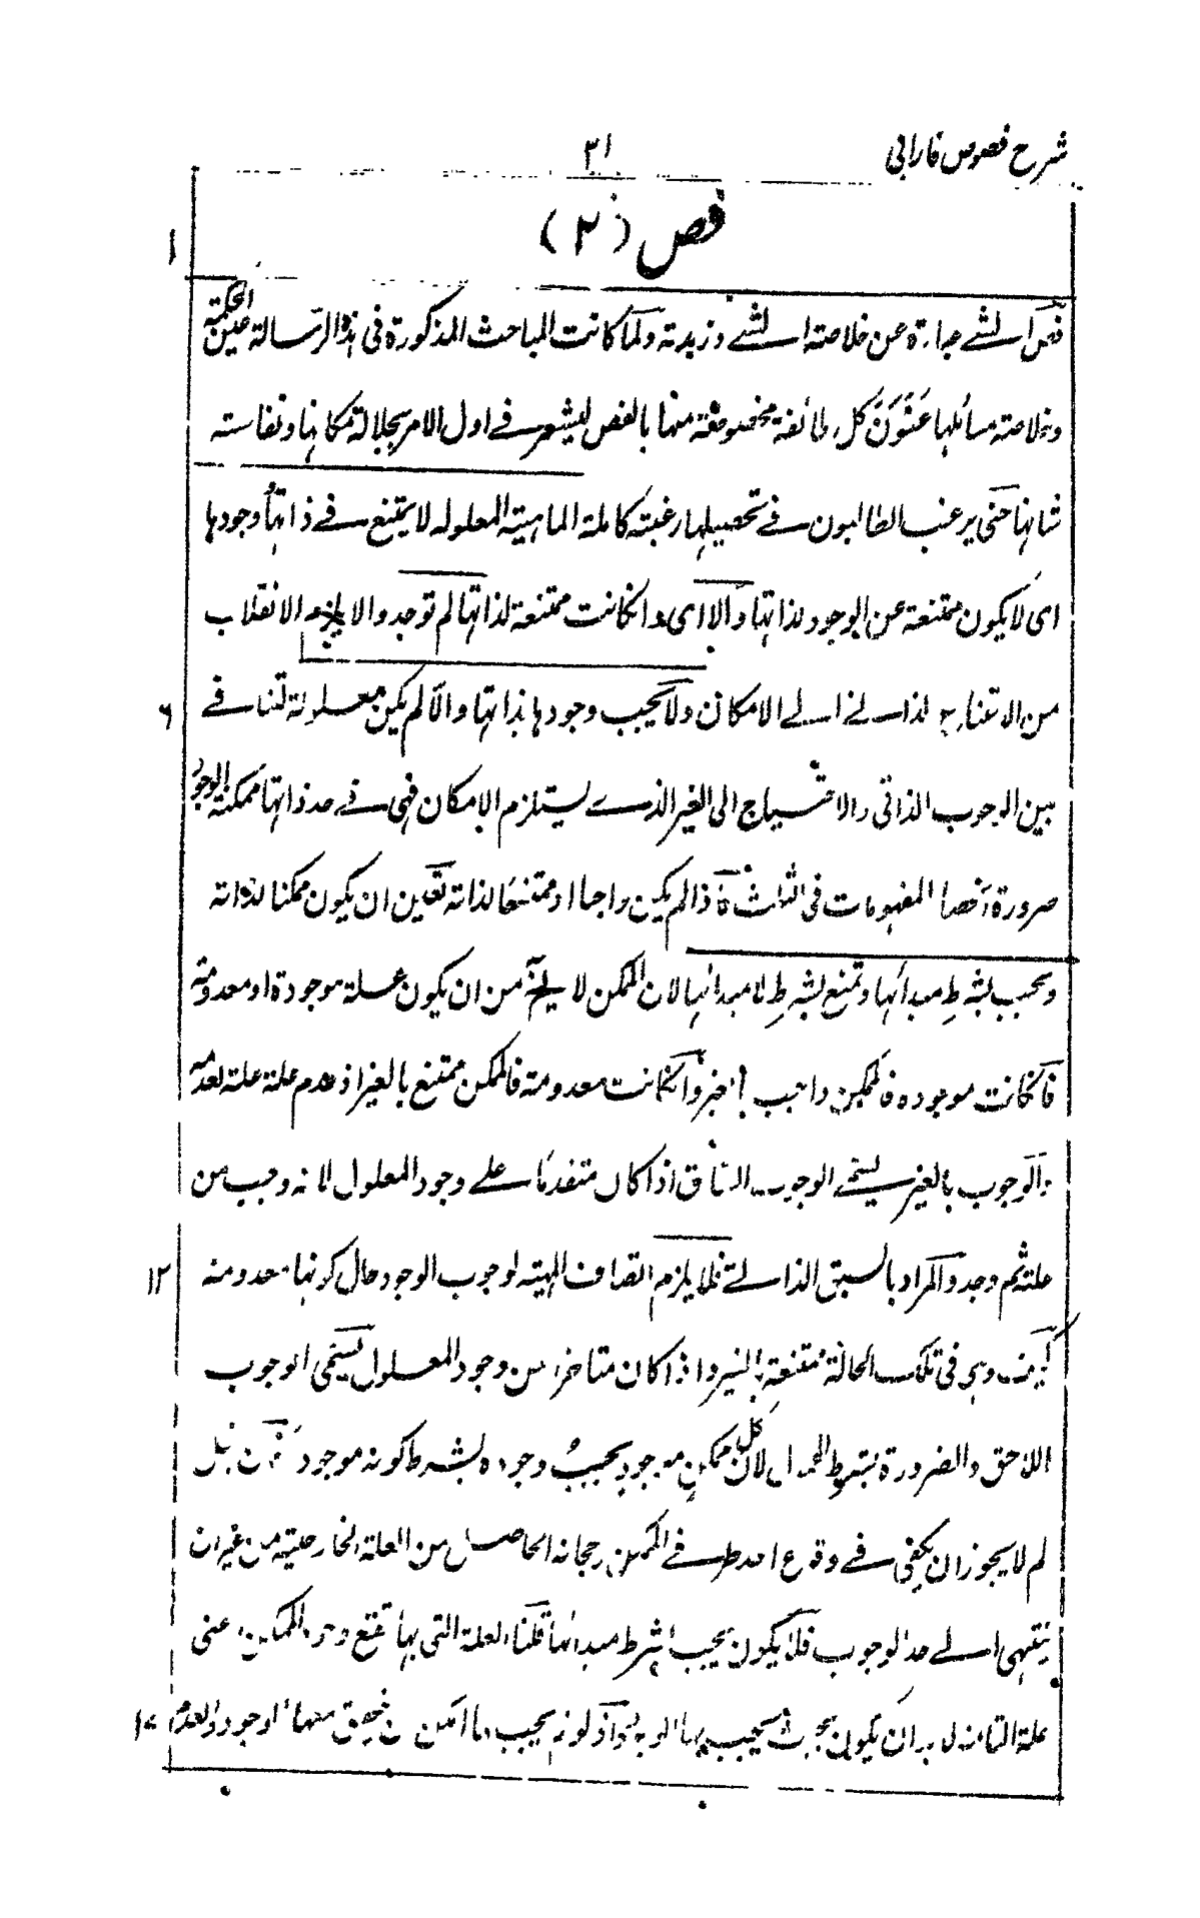 شرح فصوص فارابی
۳۱
فص (۲)
۱
فص الشے عبارة عن خلاصته الشے وزبدته ولما كانت المباحث المذكورة فی هذه الرسالة عين الحكمة
وخلاصته مسائلها عَنْوَنَ كل طائفة مخصوصة منها بالفص ليشعر فے اول الامر بجلالة مكانها ونفاسته
شانها حتی يرغب الطالبون فے تحصيلها رغبته كاملة الماهيته المعلوله لا يمتنع فے ذاتها وجودها
ای لا يكون ممتنعة عن الوجود لذاتها والا ای وان كانت ممتنعة لذاتها لم توجد والا يلزم الانقلاب
من الامتناع الذاتے الے الامكان ولا يجب وجودها بذاتها والا لم يكن معلولة لتنافے
۶
بين الوجوب الذاتی والاحتياج الی الغير الذے يستلزم الامكان فهی فے حد ذاتها ممكنة الوجود
ضرورة انحصار المفهومات فی الثلث فاذا لم يكن واجبا او ممتنعا لذاته تعين ان يكون ممكنا لذاته
ويجب بشرط مبدأها وتمتنع بشرط لا مبدأها لان الممكن لا يخ من ان يكون علته موجودة او معدومة
فان كانت موجوده فالممكن واجب بالغير وان كانت معدومته فالممكن ممتنع بالغير اذ عدم علته علة لعدمه
والوجوب بالغير يسمے الوجوب السابق اذا كان متقدما علے وجود المعلول لانه وجب من
علته ثم وجد والمراد بالسبق الذاتے فلا يلزم اتصاف الماهيته لوجوب الوجود حال كونها معدومته
۱۲
كيف وهی فی تلك الحالة ممتنعة بالغير واذا كان متاخرا عن وجود المعلول يسمی الوجوب
اللاحق والضرورة بشرط المحمول لان كل ممكن موجود يجب وجوده بشرط كونه موجودا فان قيل
لم لا يجوز ان يكفی فے وقوع احد طرفے الممكن رجحانه الحاصل من العلة الخارجية من غير ان
ينتهی الے حد الوجوب فلا يكون يجب بشرط مبدأها قلنا العلة التی بها تقع وجود الممكن اعنی
علة التامه لا بد ان يكون بحيث يجب بها الوجود اذ لو لم يجب بها امكن ان يتحقق معها الوجود والعدم